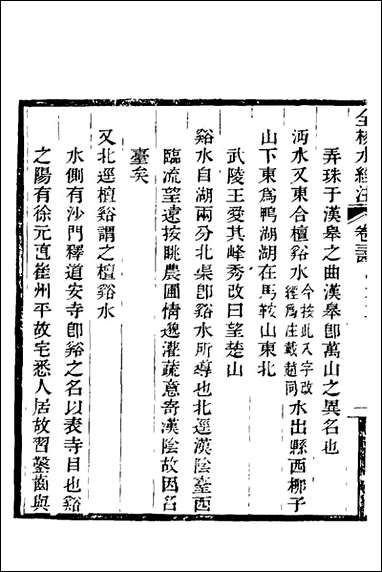 全校水經注 卷二
弄珠于漢臯之曲漢臯卽萬山之異名也
沔水又東合檀谿水今按此八字改經爲注戴趙同水出縣西柳子
山下東爲鴨湖湖在馬鞍山東北
武陵王愛其峰秀改曰望楚山
谿水自湖兩分北渠卽谿水所導也北逕漢陰臺西
臨流望遠按眺農圃情邈灌蔬意寄漢陰故因名
臺矣
又北逕檀谿謂之檀谿水
水側有沙門釋道安寺卽谿之名以表寺目也谿
之陽有徐元直崔州平故宅悉人居故習鑿齒與